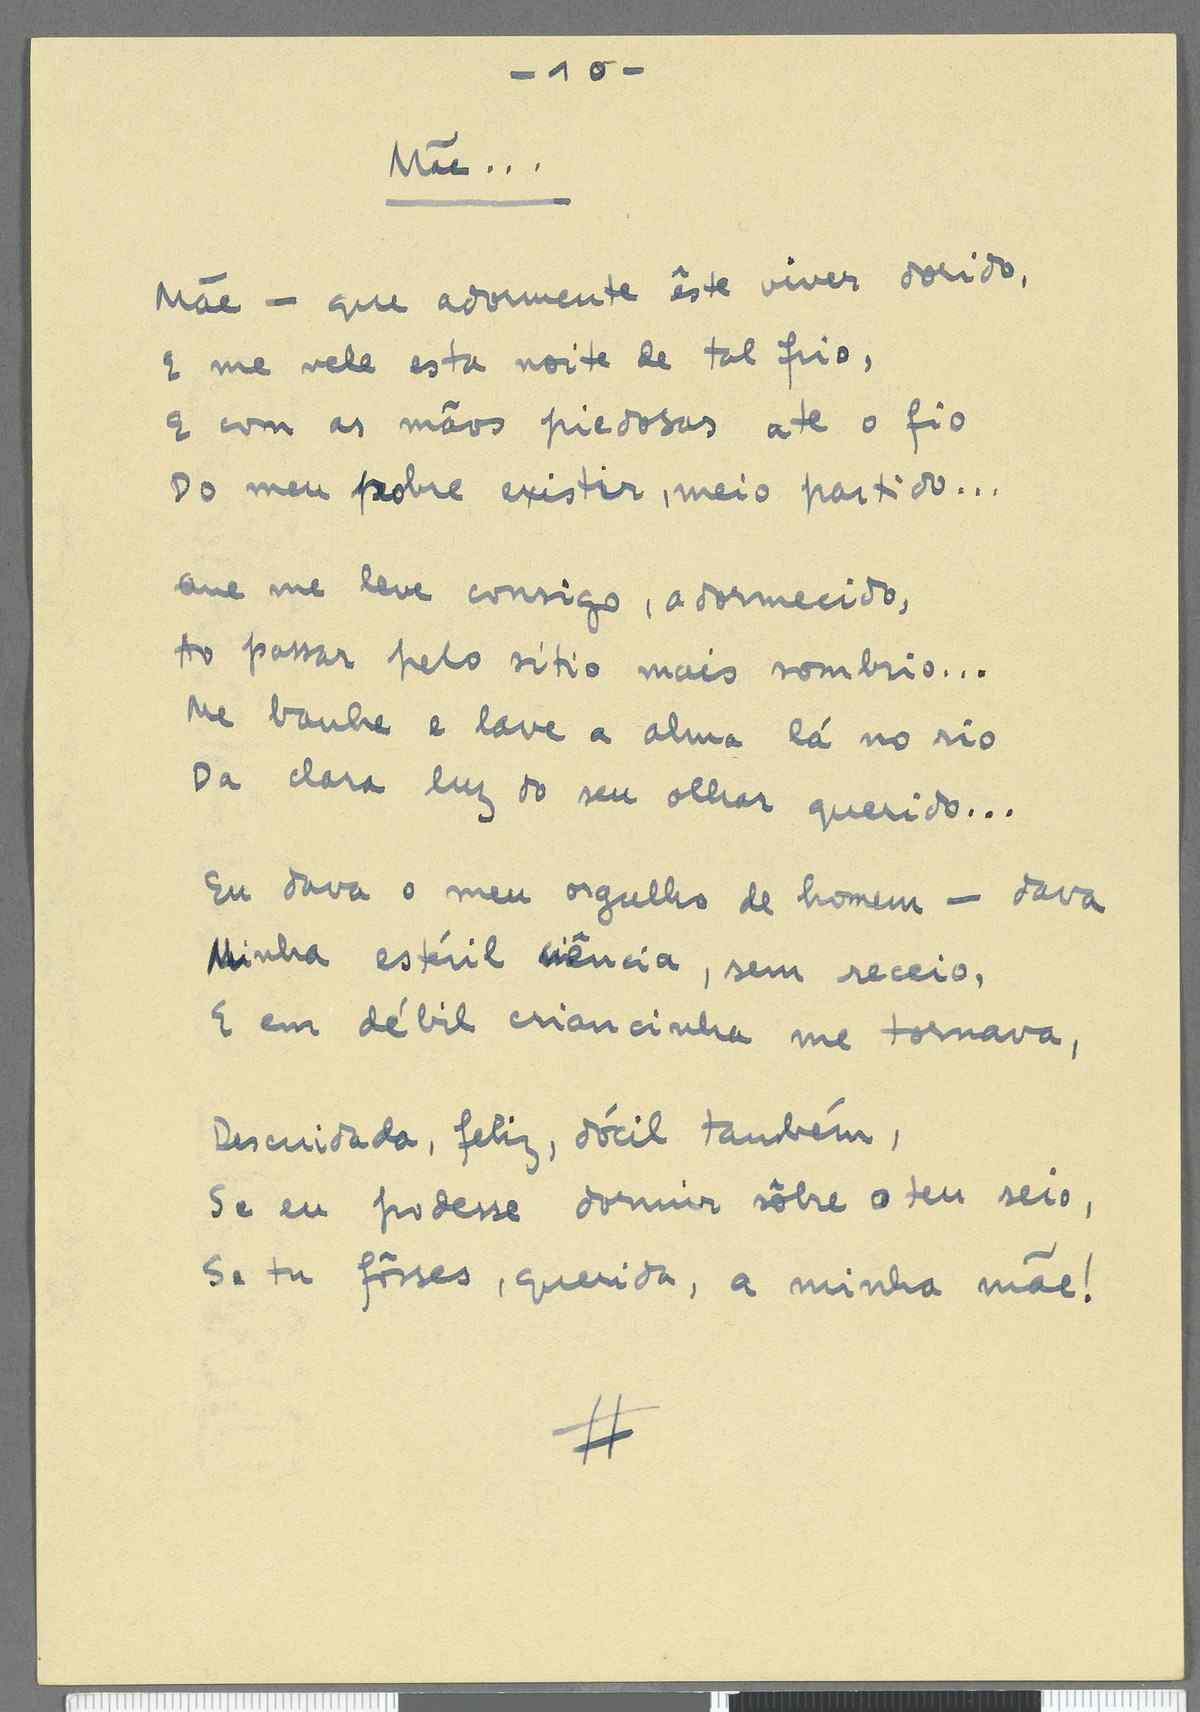 - 10 -
Mãe...
Mãe — que adormente êste viver dorido,
E me vele esta noite de tal frio,
E com as mãos piedosas ate o fio
Do meu pobre existir, meio partido...
Que me leve consigo, adormecido,
Ao passar pelo sítio mais sombrio...
Me banhe e lave a alma lá no rio
Da clara luz do seu olhar querido...
Eu dava o meu orgulho de homem — dava
Minha estéril ciência, sem receio,
E em débil criancinha me tornava,
Descuidada, feliz, dócil também,
Se eu podesse dormir sôbre o teu seio,
Se tu fôsses, querida, a minha mãe!
#